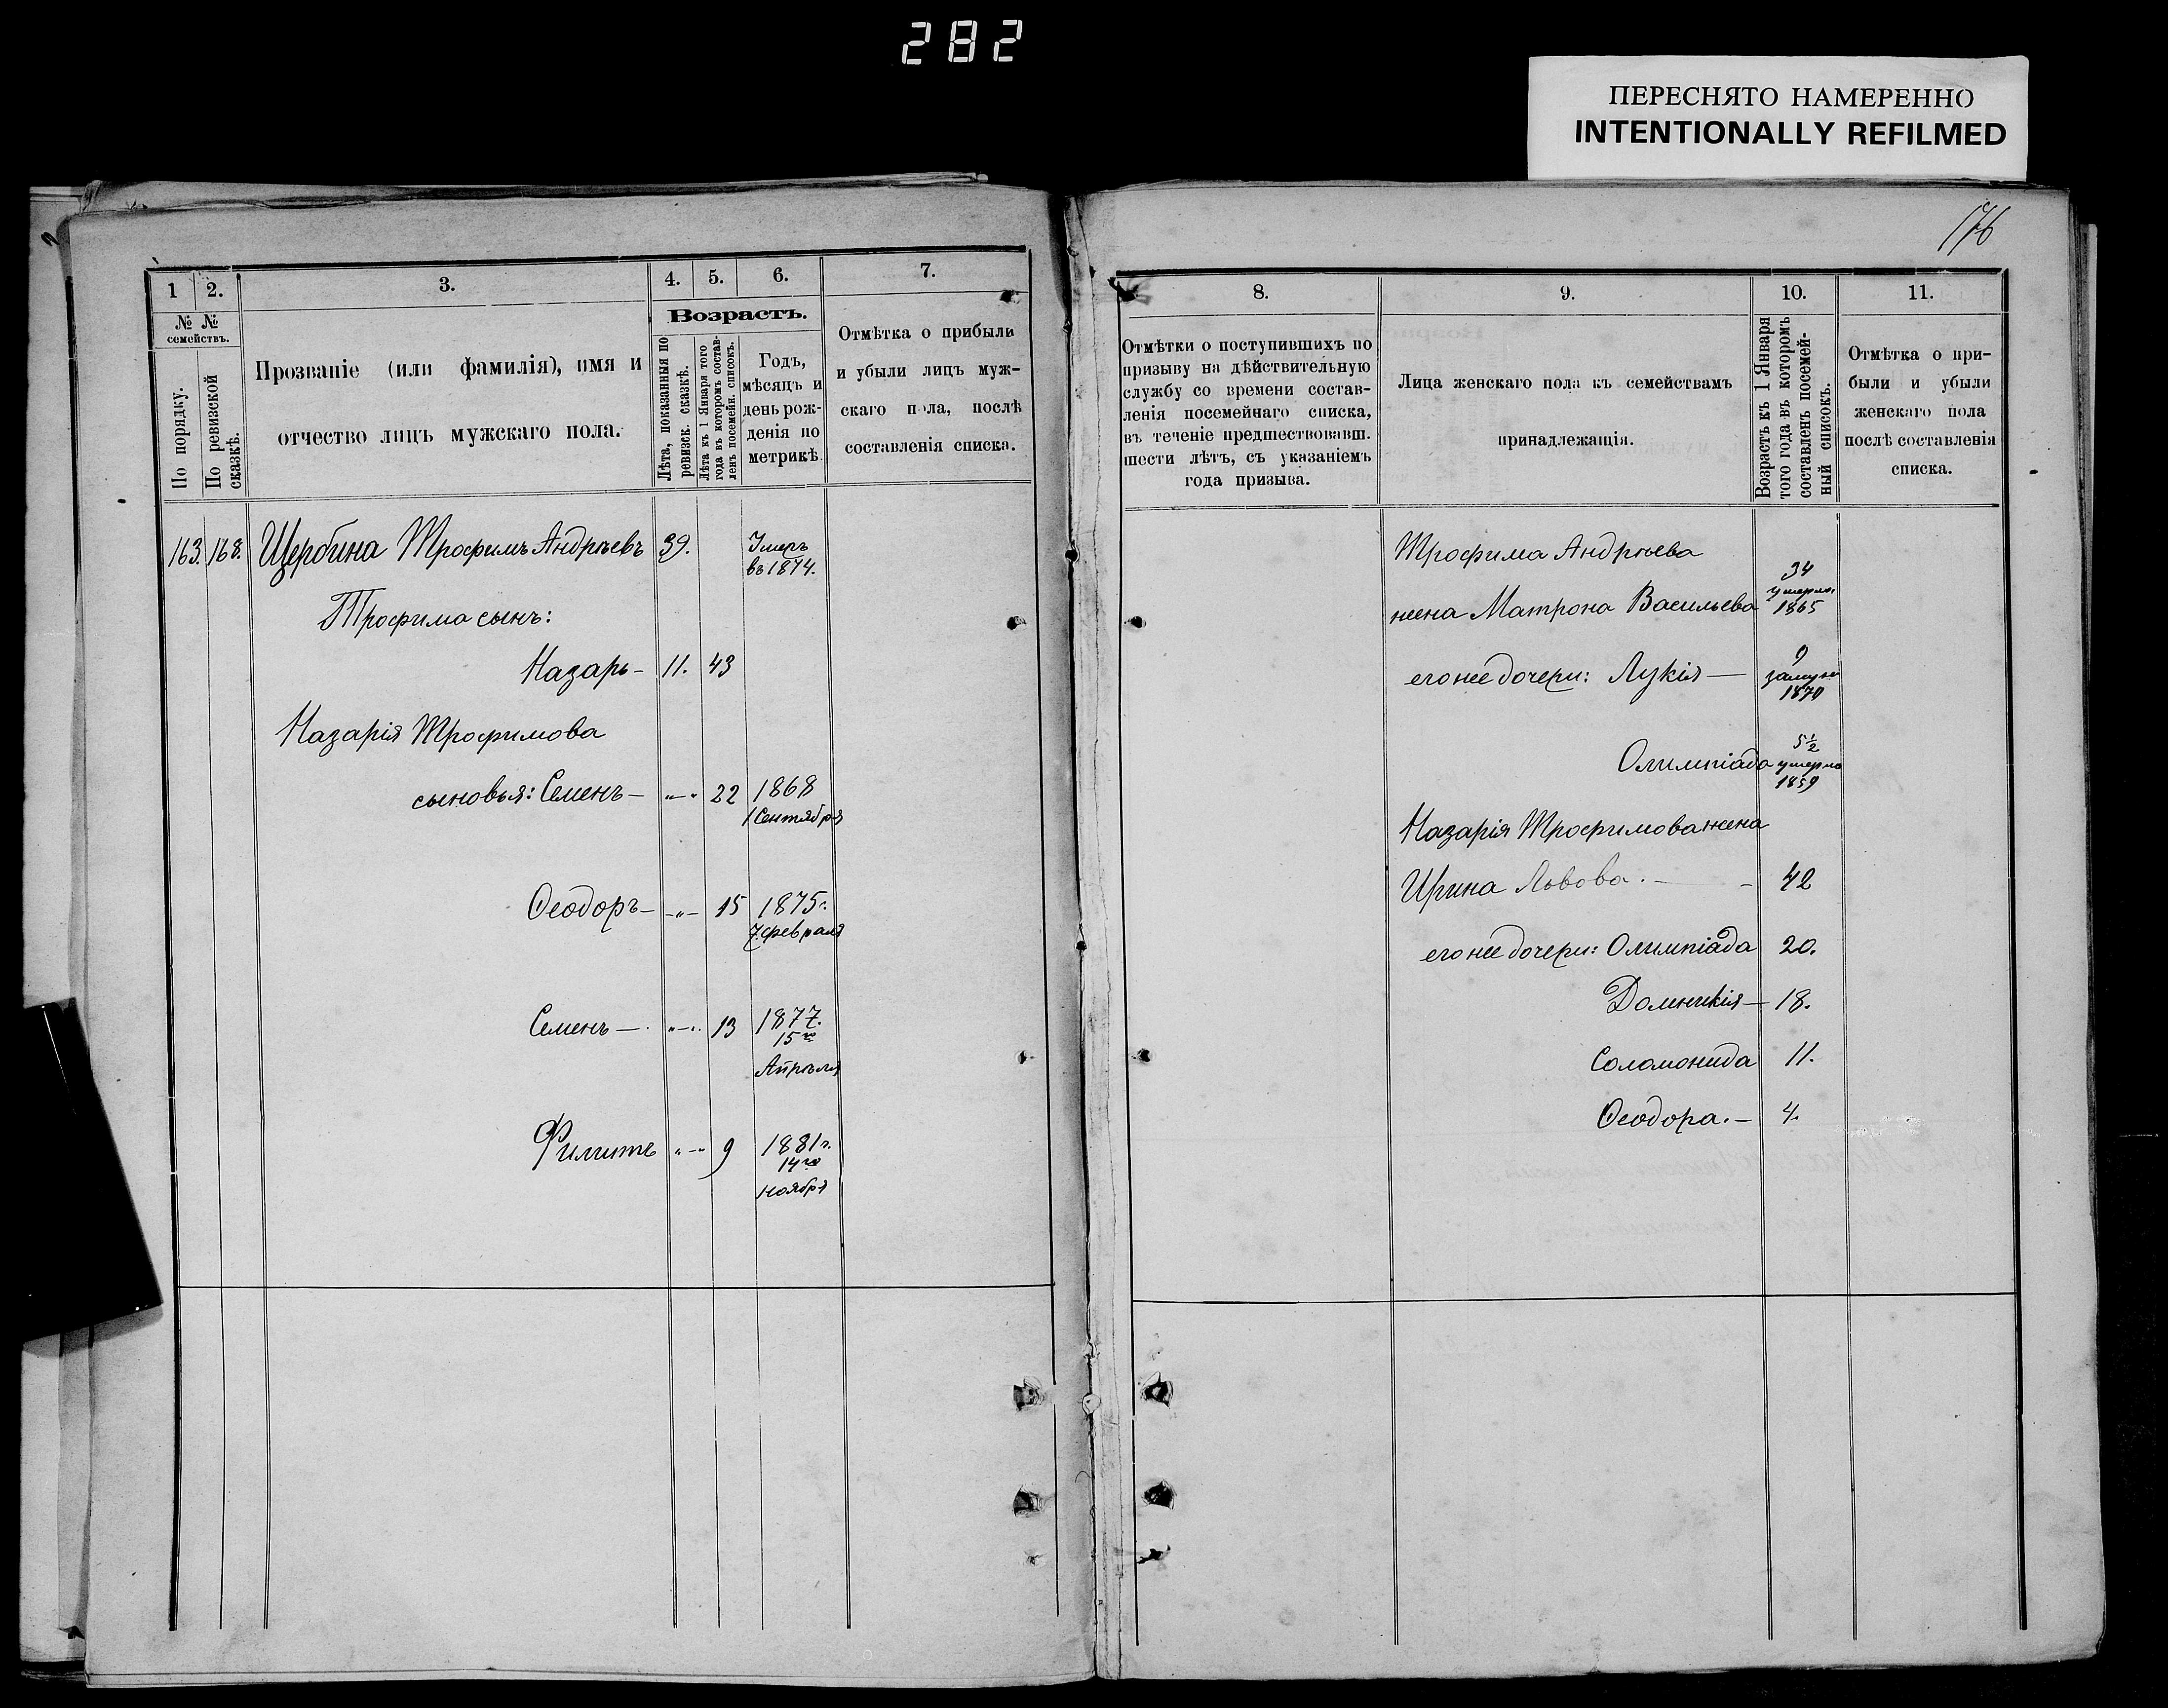 282
ПЕРЕСНЯТО НАМЕРЕННО
INTENTIONALLY REFILMED
176
1 2. 3. 4. 5. 6. 7.
№ №
семействъ.
По порядку.
По ревизской сказкѣ.
Прозваніе (или фамилія), имя и
отчество лицъ мужскаго пола.
Возрастъ.
Лѣта, показанныя по
ревизск. сказкѣ.
Лѣта къ 1 Января того
года въ которомъ состав-
ленъ посемейн. списокъ.
Годъ,
мѣсяцъ и
день рож-
денія по
метрикѣ
Отмѣтка о прибыли
и убыли лицъ муж-
скаго пола, послѣ
составленія списка.
163. 168. Щербина Трофимъ Андрѣевъ 39. Умеръ
въ 1874.
Трофима сынъ:
Назарь - 11. 43
Назарія Трофимова
сыновья: Семенъ - „ - „ 22 1868
1 Сентября
Ѳеодоръ - - „ - 15 1875 г.
7. февраля
Семенъ - . „ - „. 13 1877.
15го
Апрѣля
Филипъ „ - „ 9 1881 г.
14го
ноября
8. 9. 10. 11.
Отмѣтки о поступившихъ по
призыву на дѣйствительную
службу со времени состав-
ленія посемейнаго списка,
въ теченіе предшествовавш.
шести лѣтъ, съ указаніемъ
года призыва.
Лица женскаго пола къ семействамъ
принадлежащія.
Возрастъ къ 1 Января
того года въ которомъ
составленъ посемей-
ный списокъ.
Отмѣтка о при-
были и убыли
женскаго пола
послѣ составленія
списка.
Трофима Андрѣева
жена Матрона Васильева 34
умерла
1865
его же дочери: Лукія — 9
замуж
1870
Олимпіада 5 1/2
умерла
1859
Назарія Трофимова жена
Ирина Львова. — - 42
его же дочери: Олимпіада 20.
Домникія — 18.
Соломонида 11.
Ѳеодора. — 4.